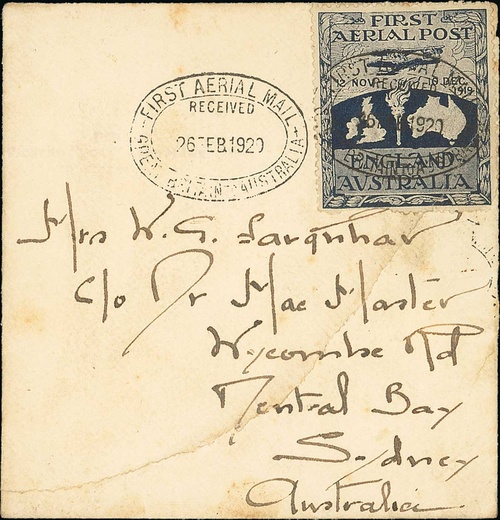 FIRST
AERIAL POST
12 NOV. 10 DEC.
1919
ENGLAND
AUSTRALIA
FIRST AERIAL MAIL
RECEIVED
26 FEB 1920
GREAT BRITAIN - AUSTRALIA
Mrs W. G. Farquhar
c/o Dr Mac Master
Wycombe Rd
Neutral Bay
Sydney
Australia